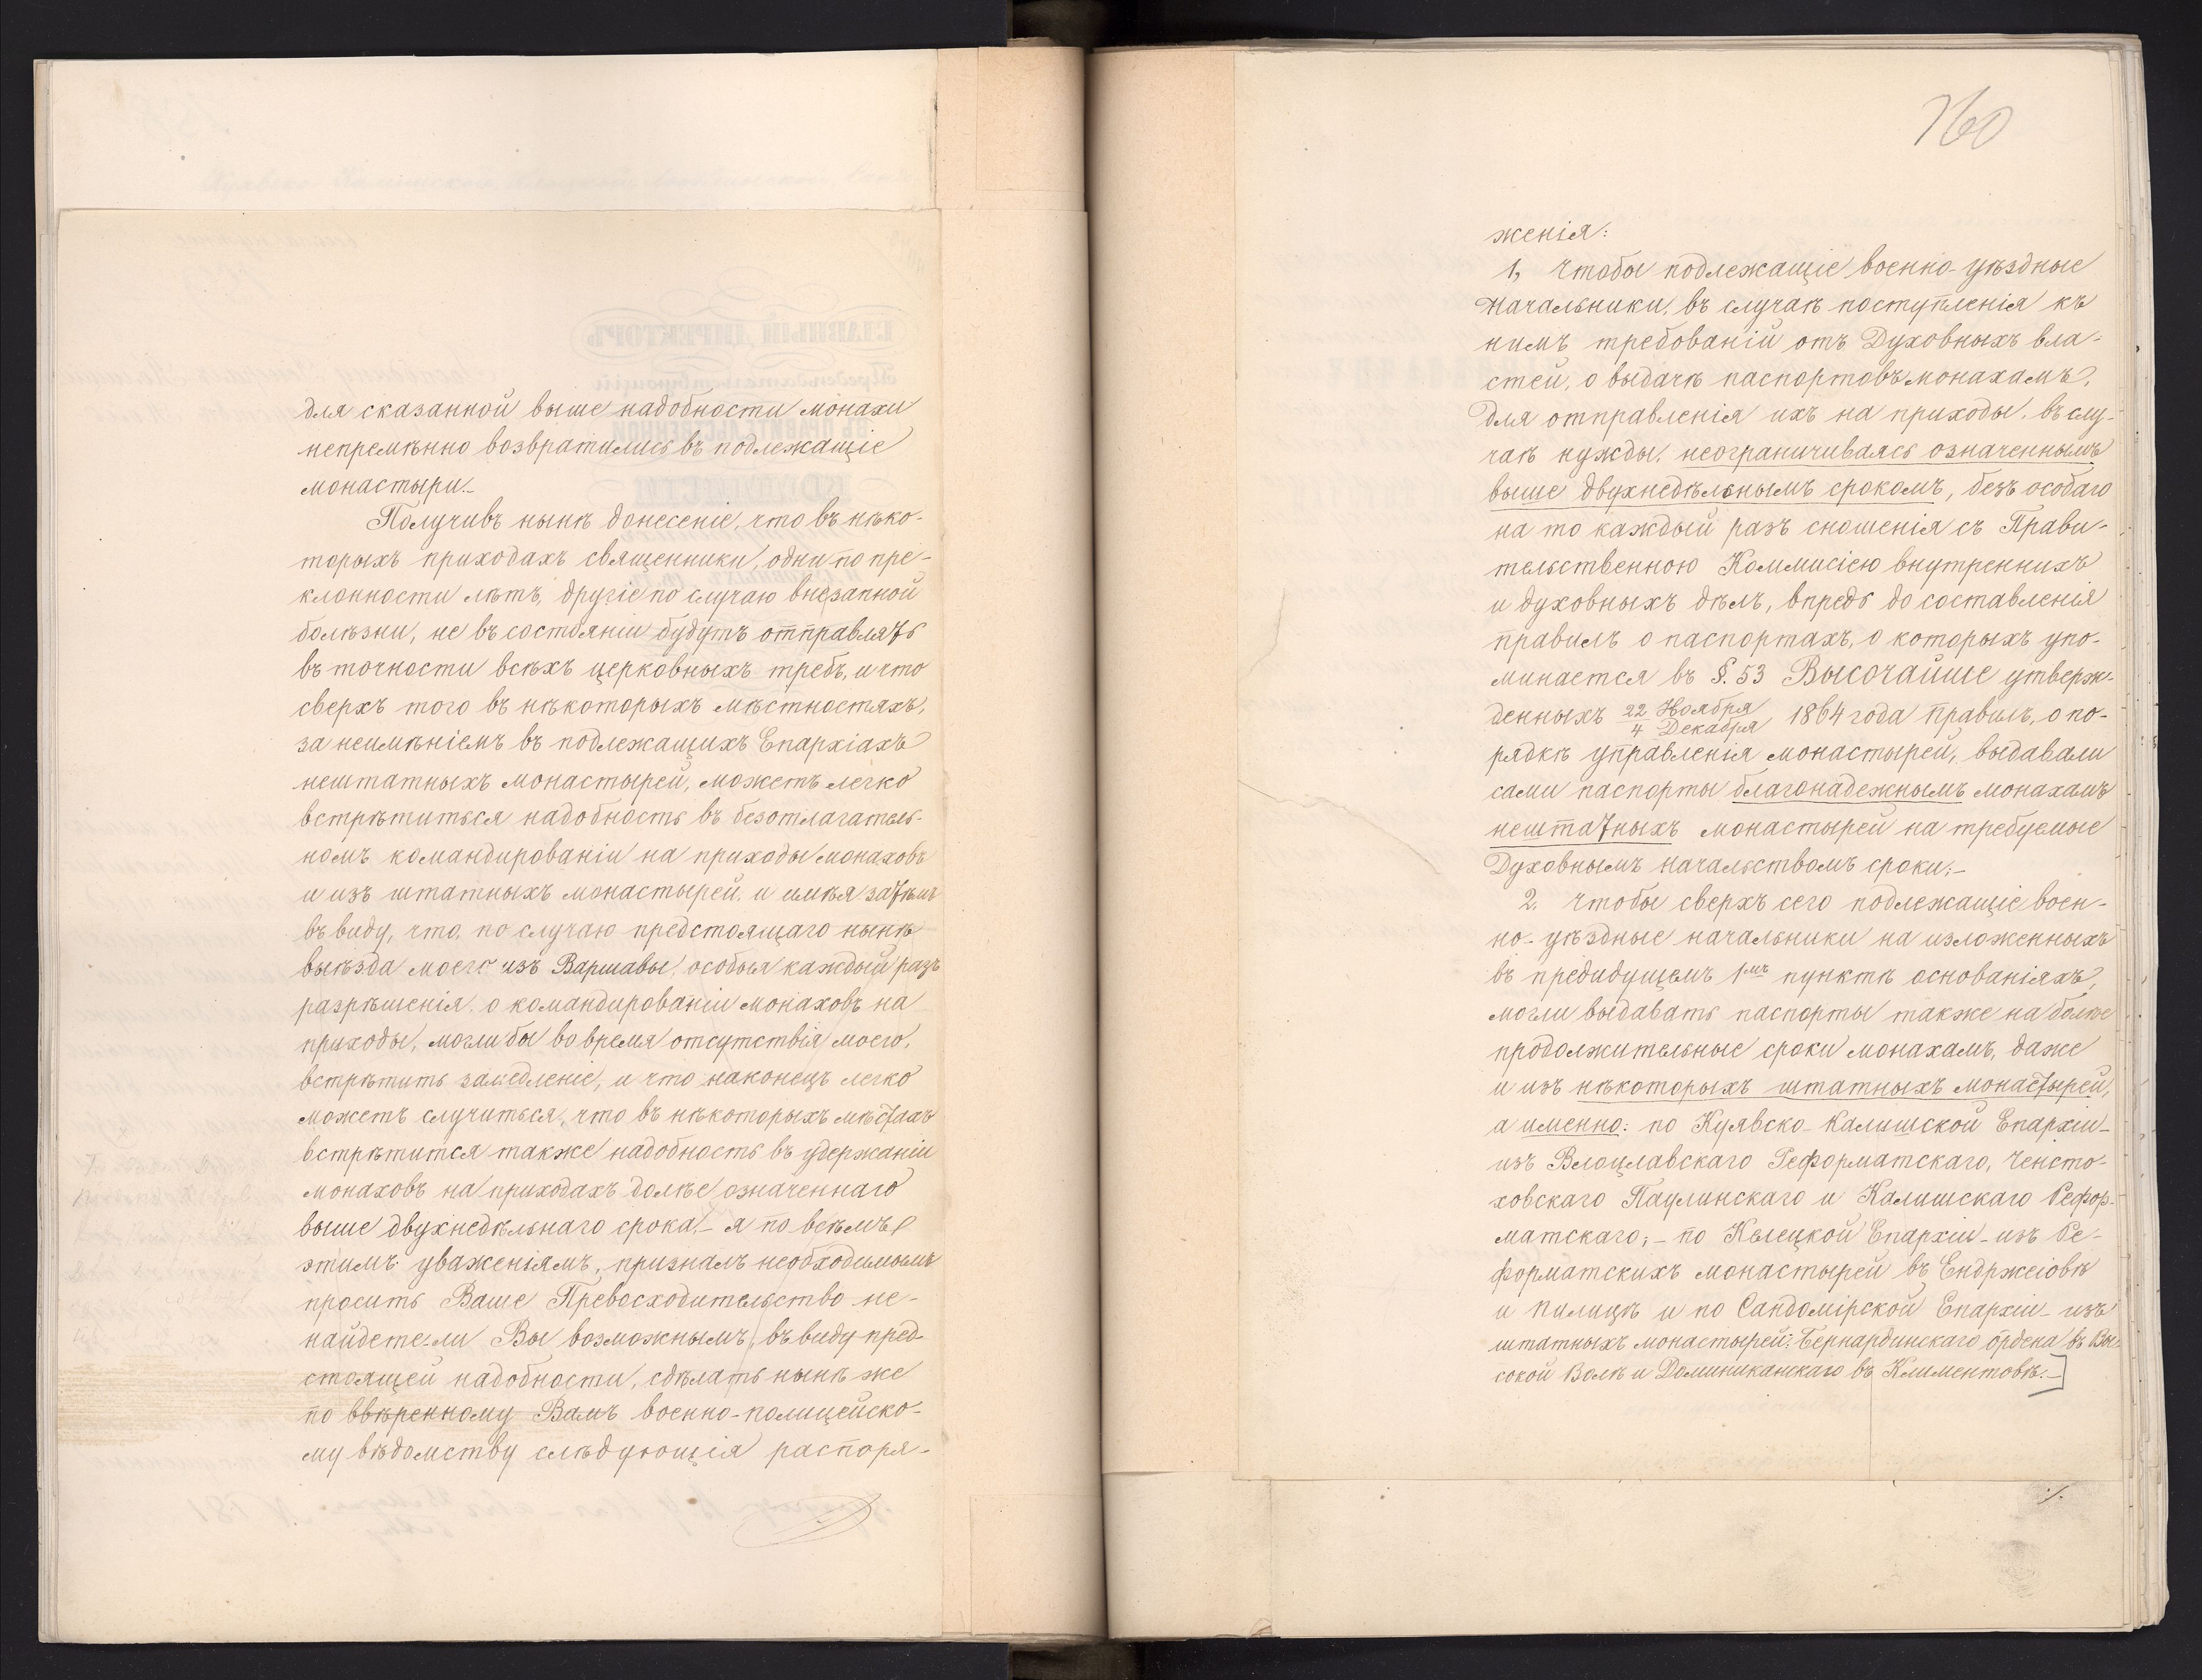 для сказанной выше надобности монахи
непремѣнно возвратились въ подлежащіе
монастыри.-
Получивъ нынѣ донесеніе, что въ нѣко-
торыхъ приходахъ священники, одни по пре-
клонности лѣтъ, другіе по случаю внезапной
болѣзни, не въ состояніи будутъ отправлять
въ точности всѣхъ церковныхъ требъ, и что
сверхъ того въ нѣкоторыхъ мѣстностяхъ,
за неимѣніемъ въ подлежащихъ Епархіахъ
нештатныхъ монастырей, можетъ легко
встрѣтиться надобность въ безотлагатель-
номъ командированіи на приходы монаховъ
и изъ штатныхъ монастырей, и имѣя затѣмъ
въ виду, что, по случаю предстоящаго нынѣ
выѣзда моего изъ Варшавы, особыя каждый разъ
разрѣшенія о командированіи монаховъ на
приходы, могли бы во время отсутствія моего,
встрѣтить замедленіе, и что наконецъ легко
можетъ случиться, что въ нѣкоторыхъ мѣстахъ
встрѣтится также надобность въ удержаніи
монаховъ на приходахъ долѣе означеннаго
выше двухнедѣльнаго срока,- я по всѣмъ
этимъ уваженіямъ, призналъ необходимымъ
просить Ваше Превосходительство не-
найдете-ли Вы возможнымъ, въ виду пред-
стоящей надобности, сдѣлать нынѣ же
по ввѣренному Вамъ военно-полицейско-
му вѣдомству слѣдующія распоря-
760
женія:
1, чтобы подлежащіе военно-уѣздные
начальники, въ случаѣ поступленія къ
нимъ требованій отъ Духовныхъ вла-
стей, о выдачѣ паспортовъ монахамъ,
для отправленія ихъ на приходы, въ слу-
чаѣ нужды, неограничиваясь означеннымъ
выше двухнедѣльнымъ срокомъ, безъ особаго
на то каждый разъ сношенія съ Прави-
тельственною Коммисіею внутреннихъ
и духовныхъ дѣлъ, впредь до составленія
правилъ о паспортахъ, о которыхъ упо-
минается въ §. 53 Высочайше утверж-
денныхъ 22 Ноября / 4 Декабря 1864 года правилъ, о по-
рядкѣ управленія монастырей, выдавали
сами паспорты благонадежнымъ монахамъ
нештатныхъ монастырей на требуемые
Духовнымъ начальствомъ сроки;-
2. чтобы сверхъ сего подлежащіе воен-
но-уѣздные начальники на изложенныхъ
въ предидущемъ 1мъ пунктѣ основаніяхъ,
могли выдавать паспорты также на болѣе
продолжительные сроки монахамъ, даже
и изъ нѣкоторыхъ штатныхъ монастырей,
а именно: по Куявско-Калишской Епархіи-
изъ Влоцлавскаго Реформатскаго, Ченсто-
ховскаго Паулинскаго и Калишскаго Рефор-
матскаго;- по Кѣлецкой Епархіи- изъ Ре-
форматскихъ монастырей въ Ендржеіовѣ
и Пилицѣ и по Сандомірской Епархіи- изъ
штатныхъ монастырей: Бернардинскаго ордена въ Вы-
сокой Волѣ и Доминиканскаго въ Климентовѣ.-]
./.